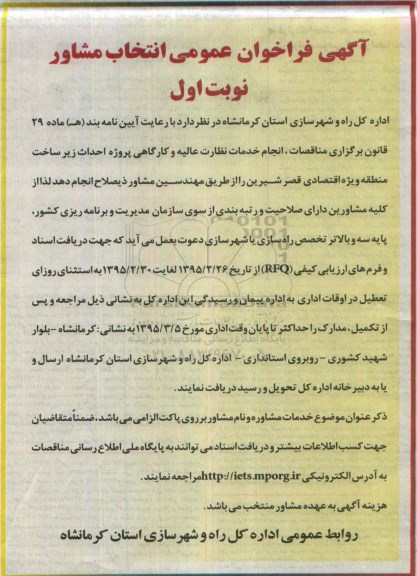 آگهی فراخوان عمومی انتخاب مشاور
نوبت اول
اداره کل راه و شهرسازی استان کرمانشاه در نظر دارد با رعایت آیین نامه بند (هـ) ماده ۲۹
قانون برگزاری مناقصات ، انجام خدمات نظارت عالیه و کارگاهی پروژه احداث زیر ساخت
منطقه ویژه اقتصادی قصر شیرین را از طریق مهندسین مشاور ذیصلاح انجام دهد لذا از
کلیه مشاورین دارای صلاحیت و رتبه بندی از سوی سازمان مدیریت و برنامه ریزی کشور،
پایه سه و بالاتر تخصص راه سازی یا شهر سازی دعوت بعمل می آید که جهت دریافت اسناد
و فرم های ارزیابی کیفی (RFQ) از تاریخ ۱۳۹۵/۲/۲۶ لغایت ۱۳۹۵/۲/۳۰ به استثنای روزای
تعطیل در اوقات اداری به اداره پیمان و رسیدگی این اداره کل به نشانی ذیل مراجعه و پس
از تکمیل ، مدارک را حداکثر تا پایان وقت اداری مورخ ۱۳۹۵/۳/۵ به نشانی : کرمانشاه – بلوار
شهید کشوری – روبروی استانداری – اداره کل راه و شهرسازی استان کرمانشاه ارسال و
یا به دبیرخانه اداره کل تحویل و رسید دریافت نمایند.
ذکر عنوان موضوع خدمات مشاوره و نام مشاور بر روی پاکت الزامی می باشد ، ضمناً متقاضیان
جهت کسب اطلاعات بیشتر و دریافت اسناد می توانند به پایگاه ملی اطلاع رسانی مناقصات
به آدرس الکترونیکی http://iets.mporg.ir مراجعه نمایند.
هزینه آگهی به عهده مشاور منتخب می باشد.
روابط عمومی اداره کل راه و شهرسازی استان کرمانشاه